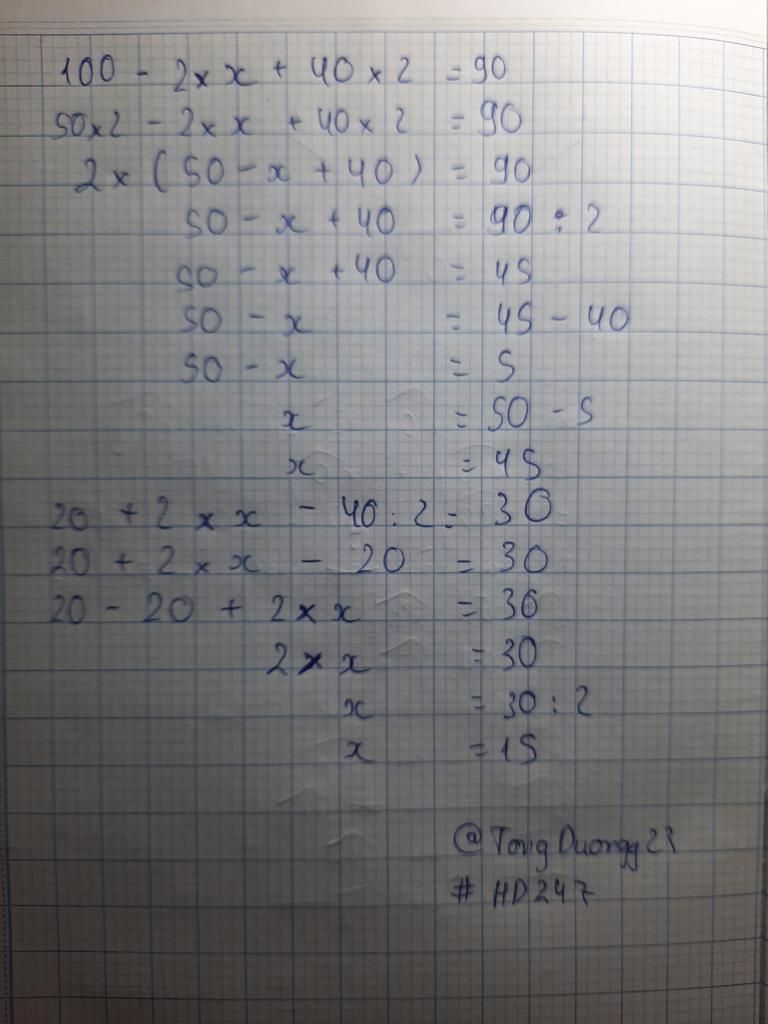 100 - 2 × x + 40 × 2 = 90
50×2 - 2 × x + 40 × 2 = 90
2 × ( 50 - x + 40 ) = 90
50 - x + 40 = 90 : 2
50 - x + 40 = 45
50 - x = 45 - 40
50 - x = 5
x = 50 - 5
x = 45
20 + 2 × x - 40 : 2 = 30
20 + 2 × x - 20 = 30
20 - 20 + 2 × x = 30
2 × x = 30
x = 30 : 2
x = 15
@TongDuongg23
# HD247